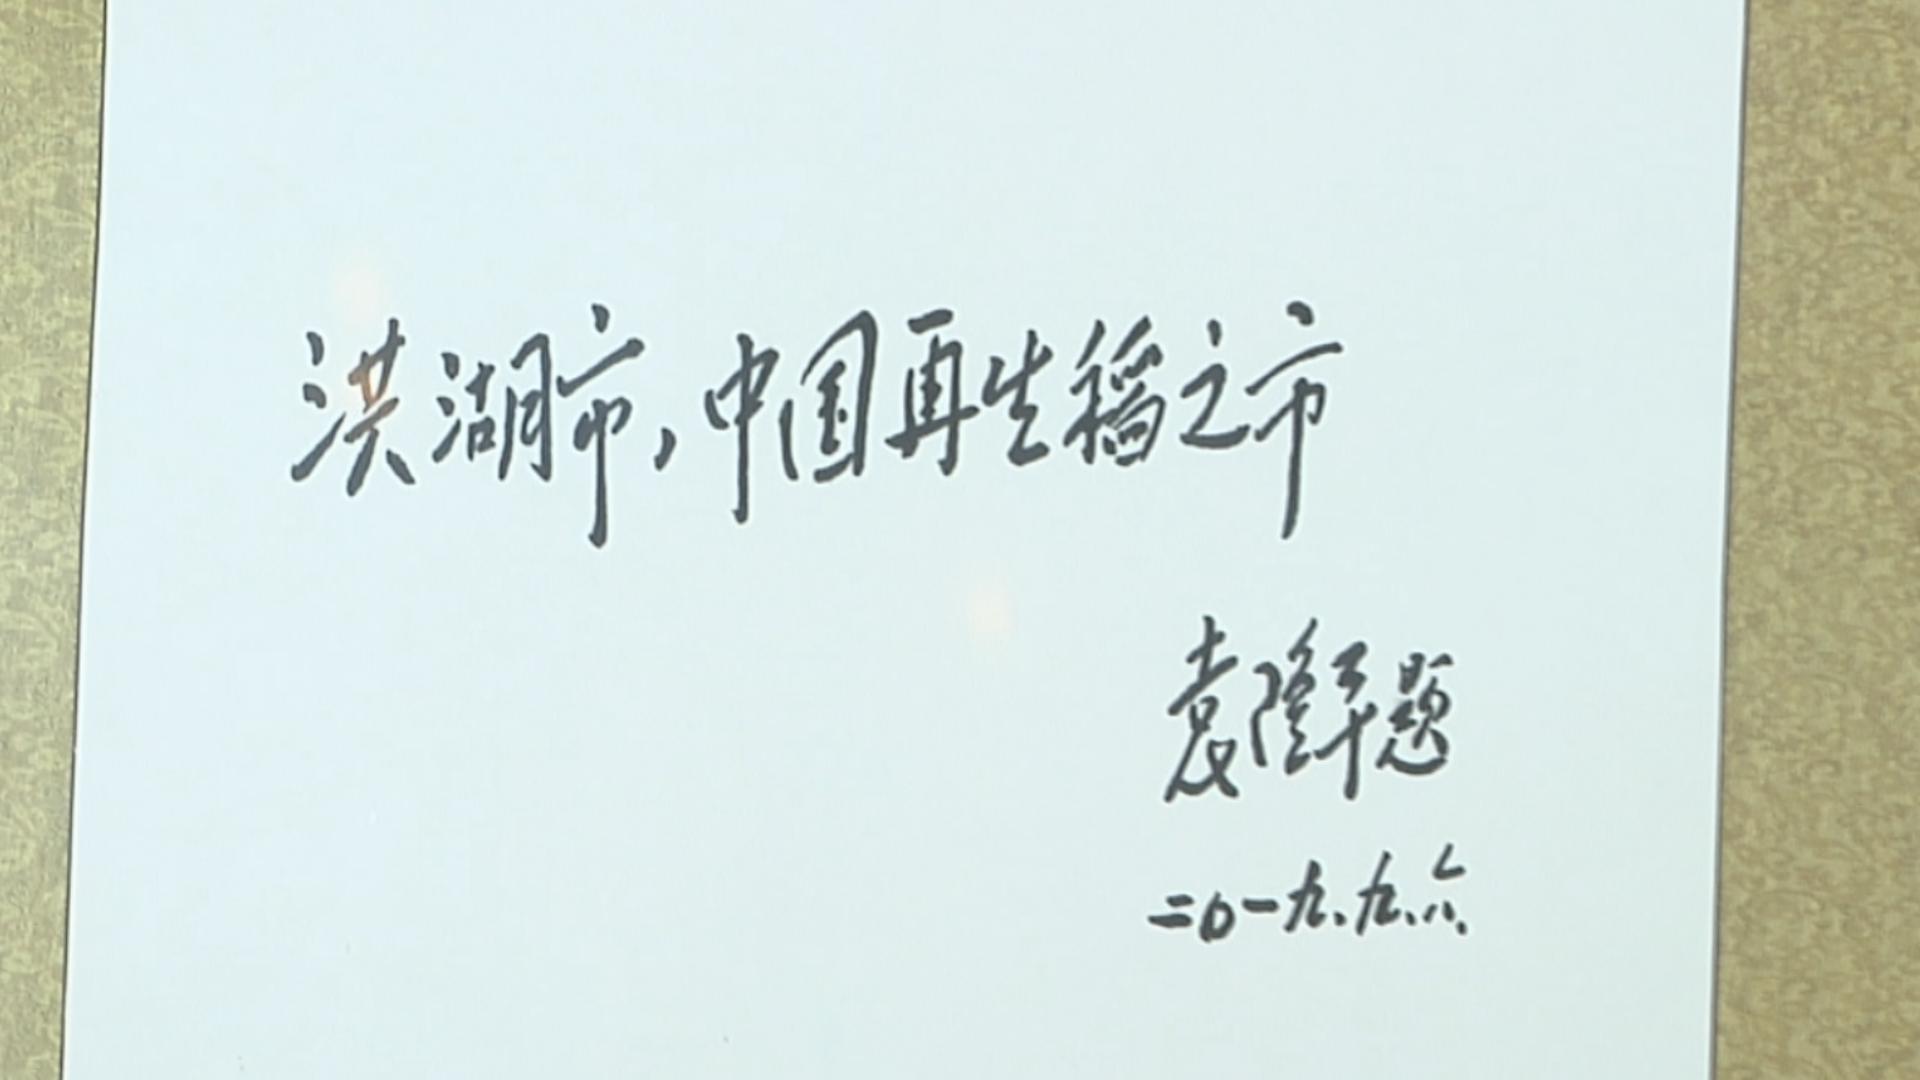 洪湖市,中国再生稻之市
袁隆平题
二0一九.九.六.